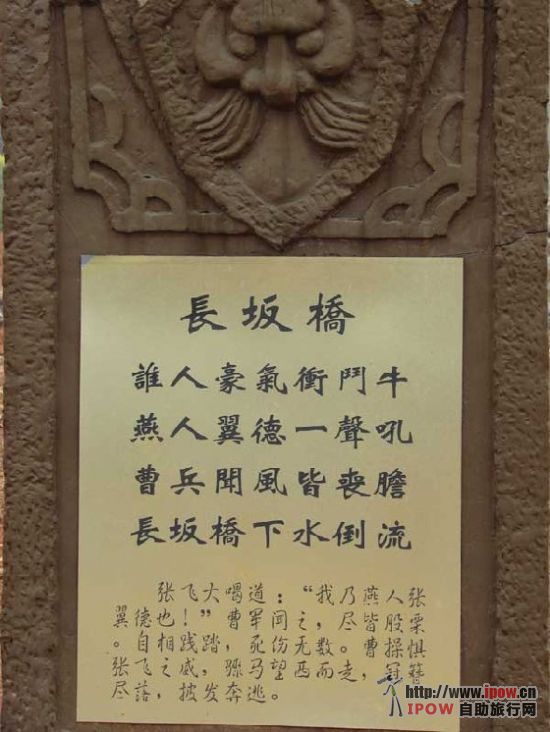 長坂橋
誰人豪氣衝鬥牛
燕人翼德一聲吼
曹兵聞風皆喪膽
長坂橋下水倒流
张飞大喝道："我乃燕人张
翼德也！"曹军闻之，尽皆股栗
。自相践踏，死伤无数。曹操惧
张飞之威，骤马望西而走，冠簪
尽落，披发奔逃。
http://www.ipow.cn
IPOW 自助旅行网